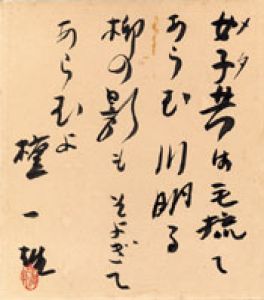 女子共は毛梳て
あらむ川明る
柳の影もそよぎて
あらむよ
檀一雄